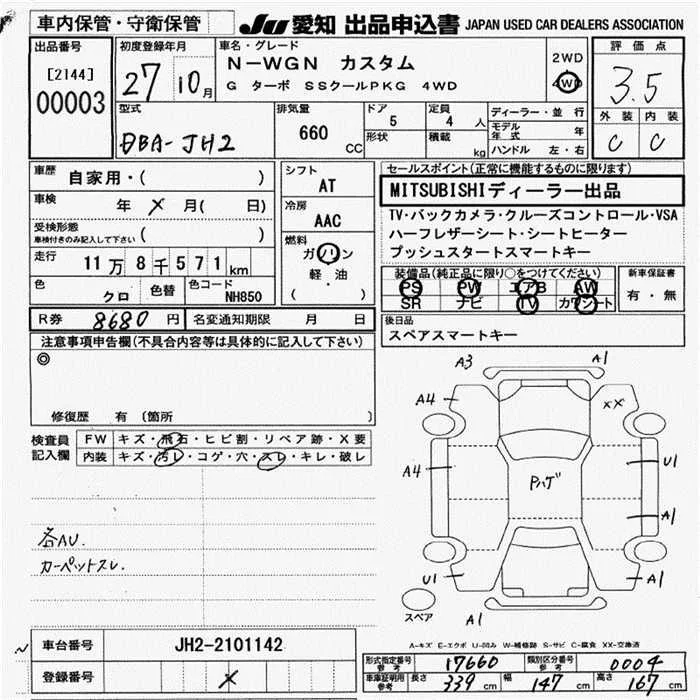 車内保管・守衛保管 JU 愛知 出品申込書 JAPAN USED CAR DEALERS ASSOCIATION
出品番号 [2144] 00003
初度登録年月 27 10月
車名・グレード N-WGN カスタム
G ターボ SSクールPKG 4WD
2WD 4WD
評価点 3.5
外装 内装
C C
型式 DBA-JH2
排気量 660 CC
ドア 5 定員 4 人
形状 積載 kg
ディーラー・並行
モデル年式 年
ハンドル 左・右
車歴 自家用・( )
車検 年 × 月( 日)
受検形態
車検付きのみ記入して下さい ( )
走行 11万8千571km
色 クロ 色替 色コード NH850
シフト AT
冷房 AAC
燃料 ガソリン
軽・油
( )
セールスポイント(正常に機能するものに限ります)
MITSUBISHIディーラー出品
TV・バックカメラ・クルーズコントロール・VSA
ハーフレザーシート・シートヒーター
プッシュスタートスマートキー
装備品(純正品に限り○をつけてください)
PS PW エアB AW
SR ナビ TV カワシート
新車保証書
有・無
R券 8680 円 名変通知期限 月 日
後日品
スペアスマートキー
注意事項申告欄(不具合内容等は具体的に記入して下さい)
◎
修復歴 有 (箇所 )
検査員記入欄
FW キズ・飛石・ヒビ割・リペア跡・X要
内装 キズ・汚レ・コゲ・穴・スレ・キレ・破レ
各AU.
カーペットスレ.
A3 A1
A4 ××
A4 U1
Pハゲ
A1
U1 A1
スペア A1
A-キズ E-エクボ U-凹み W-補修跡 S-サビ C-腐食 XX-交換済
車台番号 JH2-2101142
登録番号 ×
形式指定番号 参考 17660 類別区分番号 参考 0004
車庫証明用 参考 長さ 339 cm 幅 147 cm 高さ 167 cm